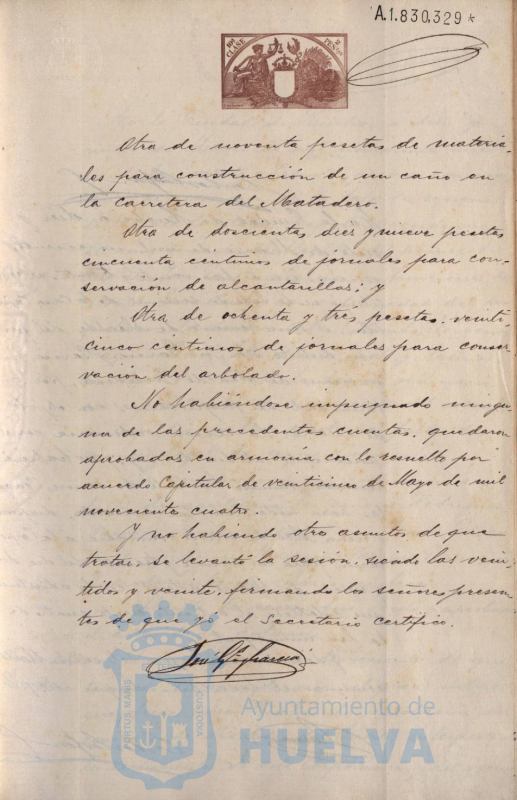 A.1.830,329*
10ª CLASE
2 PESETAS
Otra de noventa pesetas de materia-
les para construcción de un caño en
la carretera del Matadero.
Otra de doscientas diez y nueve pesetas
cincuenta céntimos de jornales para con-
servación de alcantarillas; y
Otra de ochenta y trés pesetas veinti-
cinco céntimos de jornales para conser-
vación del arbolado.
No habiéndose impugnado ningu-
na de las precedentes cuentas, quedaron
aprobadas en armonía con lo resuelto por
acuerdo Capitular de veinticinco de Mayo de mil
noveciento cuatro.
Y no habiendo otro asuntos de que
tratar, se levantó la sesión, siendo las vein-
tidos y veinte, firmando los señores presen-
tes de que yó el Secretario certifico.
José García
PORTUS MARIS
CUSTODIA
Ayuntamiento de
HUELVA